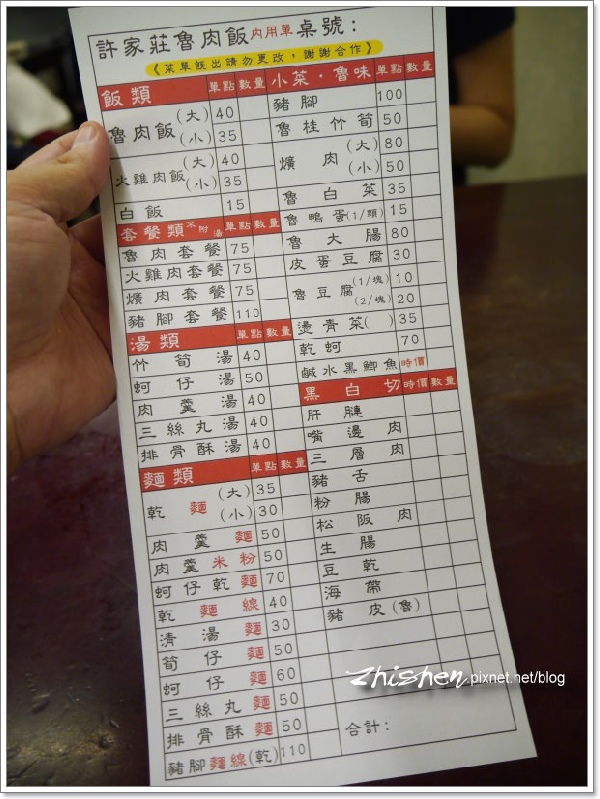 許家莊魯肉飯內用單桌號：
《菜單既出請勿更改，謝謝合作》
飯類 單點 數量
魯肉飯 (大) 40
(小) 35
火雞肉飯 (大) 40
(小) 35
白飯 15
套餐類 不附湯 單點 數量
魯肉套餐 75
火雞肉套餐 75
爌肉套餐 75
豬腳套餐 110
湯類 單點 數量
竹筍湯 40
蚵仔湯 50
肉羹湯 40
三絲丸湯 40
排骨酥湯 40
麵類 單點 數量
乾麵 (大) 35
(小) 30
肉羹麵 50
肉羹米粉 50
蚵仔乾麵 70
乾麵線 40
清湯麵 30
筍仔麵 50
蚵仔麵 60
三絲丸麵 50
排骨酥麵 50
豬腳麵線(乾) 110
小菜·魯味 單點 數量
豬腳 100
魯桂竹筍 50
爌肉 (大) 80
(小) 50
魯白菜 35
魯鴨蛋(1/顆) 15
魯大腸 80
皮蛋豆腐 30
魯豆腐 (1/塊) 10
(2/塊) 20
燙青菜( ) 35
乾蚵 70
鹹水黑鯽魚 時價
黑白切 時價 數量
肝腱
嘴邊肉
三層肉
豬舌
粉腸
松阪肉
生腸
豆乾
海帶
豬皮(魯)
合計：
zhishen.pixnet.net/blog